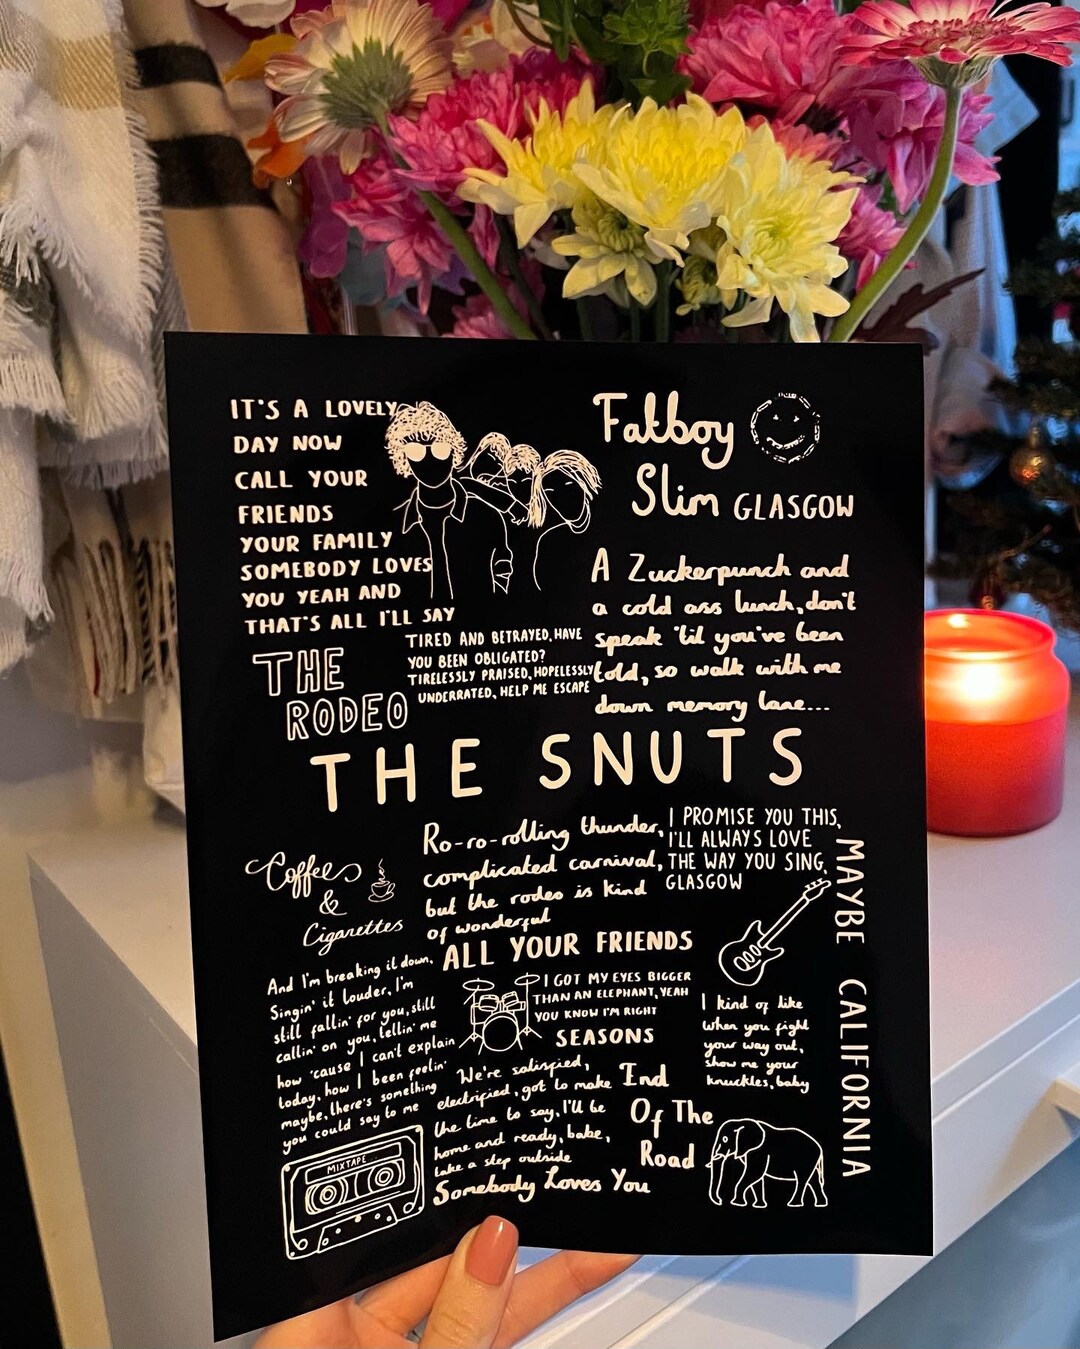 IT'S A LOVELY
DAY NOW
CALL YOUR
FRIENDS
YOUR FAMILY
SOMEBODY LOVES
YOU YEAH AND
THAT'S ALL I'LL SAY
Fatboy
Slim GLASGOW
A Zuckerpunch and
a cold ass lunch, don't
speak 'til you've been
told, so walk with me
down memory lane...
TIRED AND BETRAYED, HAVE
YOU BEEN OBLIGATED?
TIRELESSLY PRAISED, HOPELESSLY
UNDERRATED, HELP ME ESCAPE
THE
RODEO
THE SNUTS
Coffee
&
Cigarettes
Ro-ro-rolling thunder,
complicated carnival,
but the rodeo is kind
of wonderful
I PROMISE YOU THIS,
I'LL ALWAYS LOVE
THE WAY YOU SING,
GLASGOW
MAYBE CALIFORNIA
ALL YOUR FRIENDS
And I'm breaking it down,
Singin' it louder, I'm
still fallin' for you, still
callin' on you, tellin' me
how 'cause I can't explain
today, how I been feelin'
maybe, there's something
you could say to me
I GOT MY EYES BIGGER
THAN AN ELEPHANT, YEAH
YOU KNOW I'M RIGHT
SEASONS
I kind of like
when you fight
your way out,
show me your
knuckles, baby
We're satisfied,
electrified, got to make
the time to say, I'll be
home and ready, babe,
take a step outside
Somebody Loves You
End
Of The
Road
MIXTAPE